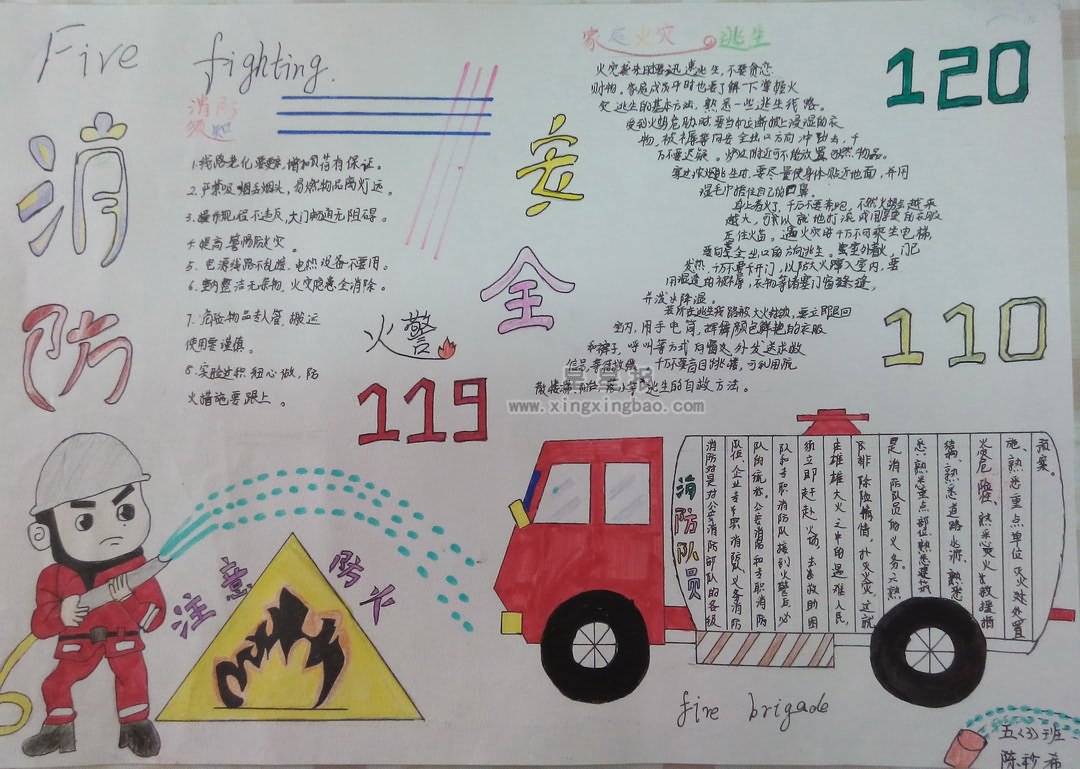 Fire fighting.
消防
安全
消防
须知
1.线路老化要更换,增加负荷有保证。
2.严禁吸烟丢烟头,易燃物品离灯远。
3.操作规程不违反,大门畅通无阻碍。
4.提高警惕防火灾。
5.电源线路不乱接,电热设备不要用。
6.室内整洁无杂物,火灾隐患全消除。
7.危险物品专人管,搬运
使用要谨慎。
8.实验过程细心做,防
火措施要跟上。
火警
119
家庭火灾逃生
火灾袭来时要迅速逃生,不要贪恋
财物,家庭成员平时也要了解一下掌握火
灾逃生的基本方法,熟悉一些逃生线路。
受到火势危胁时要当机立断披上浸湿的衣
物,被褥等向安全出口方向冲出去,千
万不要迟疑。炉灶附近可不能放置可燃物品。
穿过浓烟逃生时,要尽量使身体贴近地面,并用
湿毛巾捂住自己的口鼻。
身上着火了,千万不要奔跑,不然火势会越来
越大,可以就地打滚或用厚重的衣服
压住火苗。遇火灾时千万不可乘坐电梯,
要向安全出口的方向逃生。室外着火,门已
发热,千万不要开门,以防大火蹿入室内,要
用浸湿的被褥,衣物等堵塞门窗缝,
并泼水降温。
若所有逃生线路被大火封锁,要立即退回
室内,用手电筒,挥舞颜色鲜艳的衣服
和裤子,呼叫等方式向窗外发送求救
信号,等待救援。千万不要盲目跳楼,可利用疏
散楼梯,阳台,落水管逃生的自救方法。
120
110
星星报
www.xingxingbao.com
注意防火
消防队员
消防队是对公安消防部队的各级
队伍,企业专职消防队,义务消防
队的统称。公安消防和专职消防
队和专职消防队接到火警后,必
须立即赶赴火场,去救助困
在雄雄大火之中的遇难人民,
及排除险情,扑灭火灾,这就
是消防队员的义务。六熟
悉:熟悉重点部位,熟悉建筑
结构,熟悉道路水源,熟悉
火灾危险性,熟悉灭火救援措
施,熟悉重点单位灭火处置
预案。
fire brigade
五(3)班